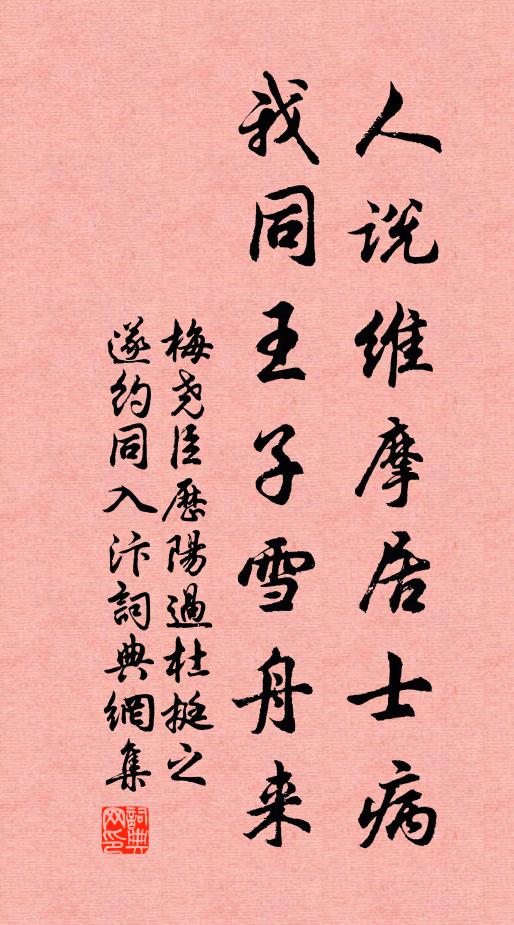 人说维摩居士病
我同王子雪舟来
梅尧臣歷陽過杜挺之
遂約同入汴詞典網集
詞典
网印